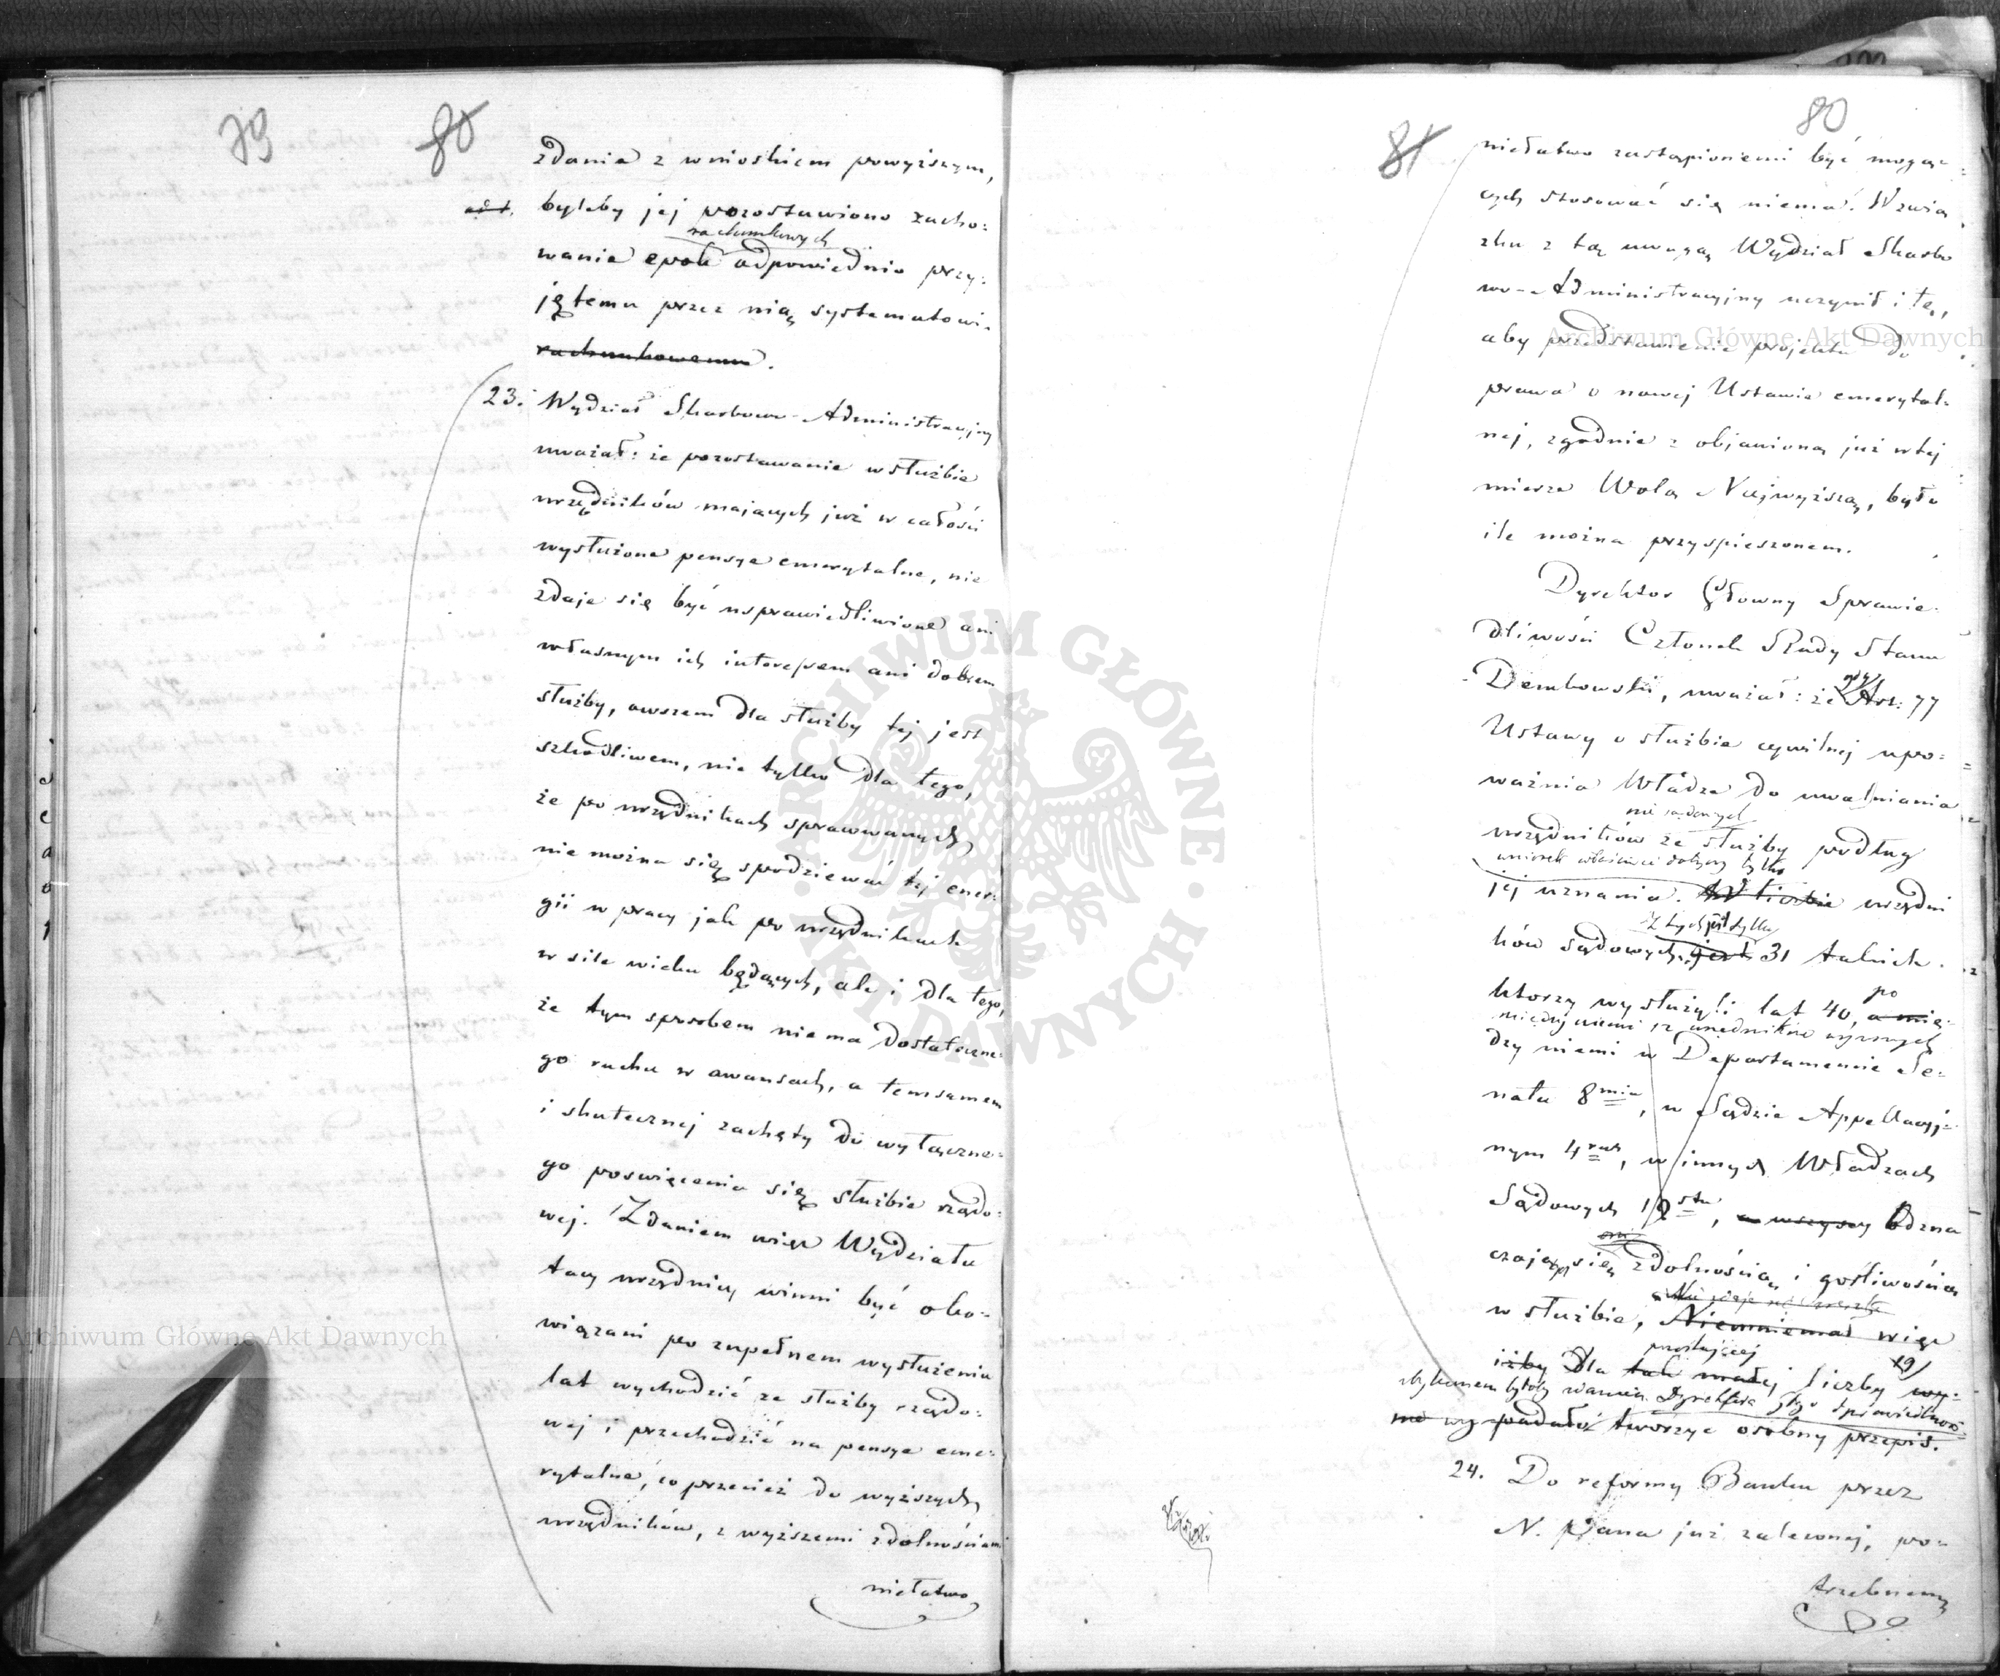 79
80
zdania z wnioskiem powyższym,
byleby jej pozostawiono zacho-
rachunkowych
wanie epok odpowiednio przy-
jętemu przez nią systematowi
rachunkowemu.
23. Wydział Skarbowo-Administracyjny
uważał: że pozostawanie w służbie
urzędników mających już w całości
wysłużone pensye emerytalne, nie
zdaje się być usprawiedliwione ani
własnym ich interesem ani dobrem
służby, owszem dla służby tej jest
szkodliwem, nie tylko dla tego,
że po urzędnikach spracowanych
nie można się spodziewać tej ener-
gii w pracy jak po urzędnikach
w sile wieku będących, ale i dla tego,
że tym sposobem niema dostateczne-
go ruchu w awansach, a temsamem
i skutecznej zachęty do wyłączne-
go poswięcenia się służbie rządo-
wej. Zdaniem więc Wydziału
tacy urzędnicy winni być obo-
wiązani po zupełnem wysłużeniu
lat wychodzić ze służby rządo-
wej i przechodzić na pensye eme-
rytalne, co przecież do wyższych
urzędników, z wyższemi zdolnościami
niełatwo
80
81
niełatwo zastąpionemi być mogą-
cych stosować się niema. W związ
zku z tą uwagą Wydział Skarbo
wo-Administracyjny uczynił i tę,
aby przedstawienie projektu do
prawa o nowej Ustawie emerytal-
nej, zgodnie z objawioną już w tej
mierze Wolą Najwyższą, było
ile można przyspieszonem.
Dyrektor Główny Sprawie-
dliwości Członek Rady Stanu
Dembowski, uważał: że gdy Art: 77
Ustawy o służbie cywilnej upo-
ważnia Władze do uwalniania
nie sądowych
urzędników ze służby podług
wniosek właściwie dotyczy tylko
jej uznania. W liczbie urzędni
ków sądowych, jest 31 takich
którzy wysłużyli lat 40, a mię-
po
między niemi 12 urzędników wyższych
dzy niemi w Departamencie Se-
natu 8miu, w Sądzie Appellacyj-
nym 4rech, w innych Władzach
Sądowych 19stu, a wszyscy Odzna
czają się zdolnością i gorliwością
w służbie, Niemniemał więc
iżby dla tak małej liczby wy-
pozostającej
19
zdaniem byłoby Dyrektora Sprawiedliwości
wypadało tworzyć osobny przepis.
24. Do reformy Banku przez
N. Pana już zaleconej, po-
trzebnem
Archiwum Główne Akt Dawnych
Archiwum Główne Akt Dawnych
ARCHIWUM GŁÓWNE · AKT DAWNYCH ·